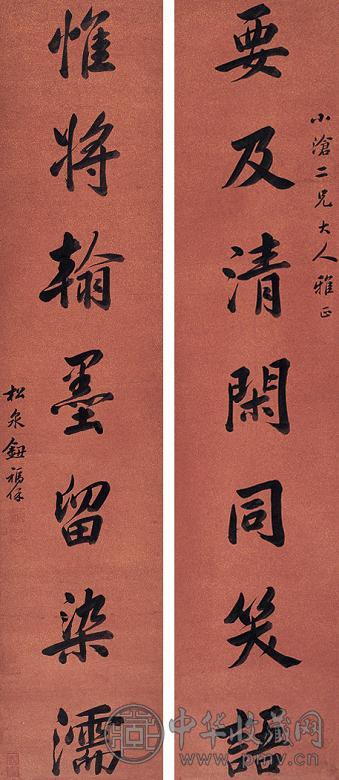 要及清閑同笑語
小滄二兄大人雅正
惟將翰墨留染濡
松泉鈕福保
中华收藏网
www.pmv.cn